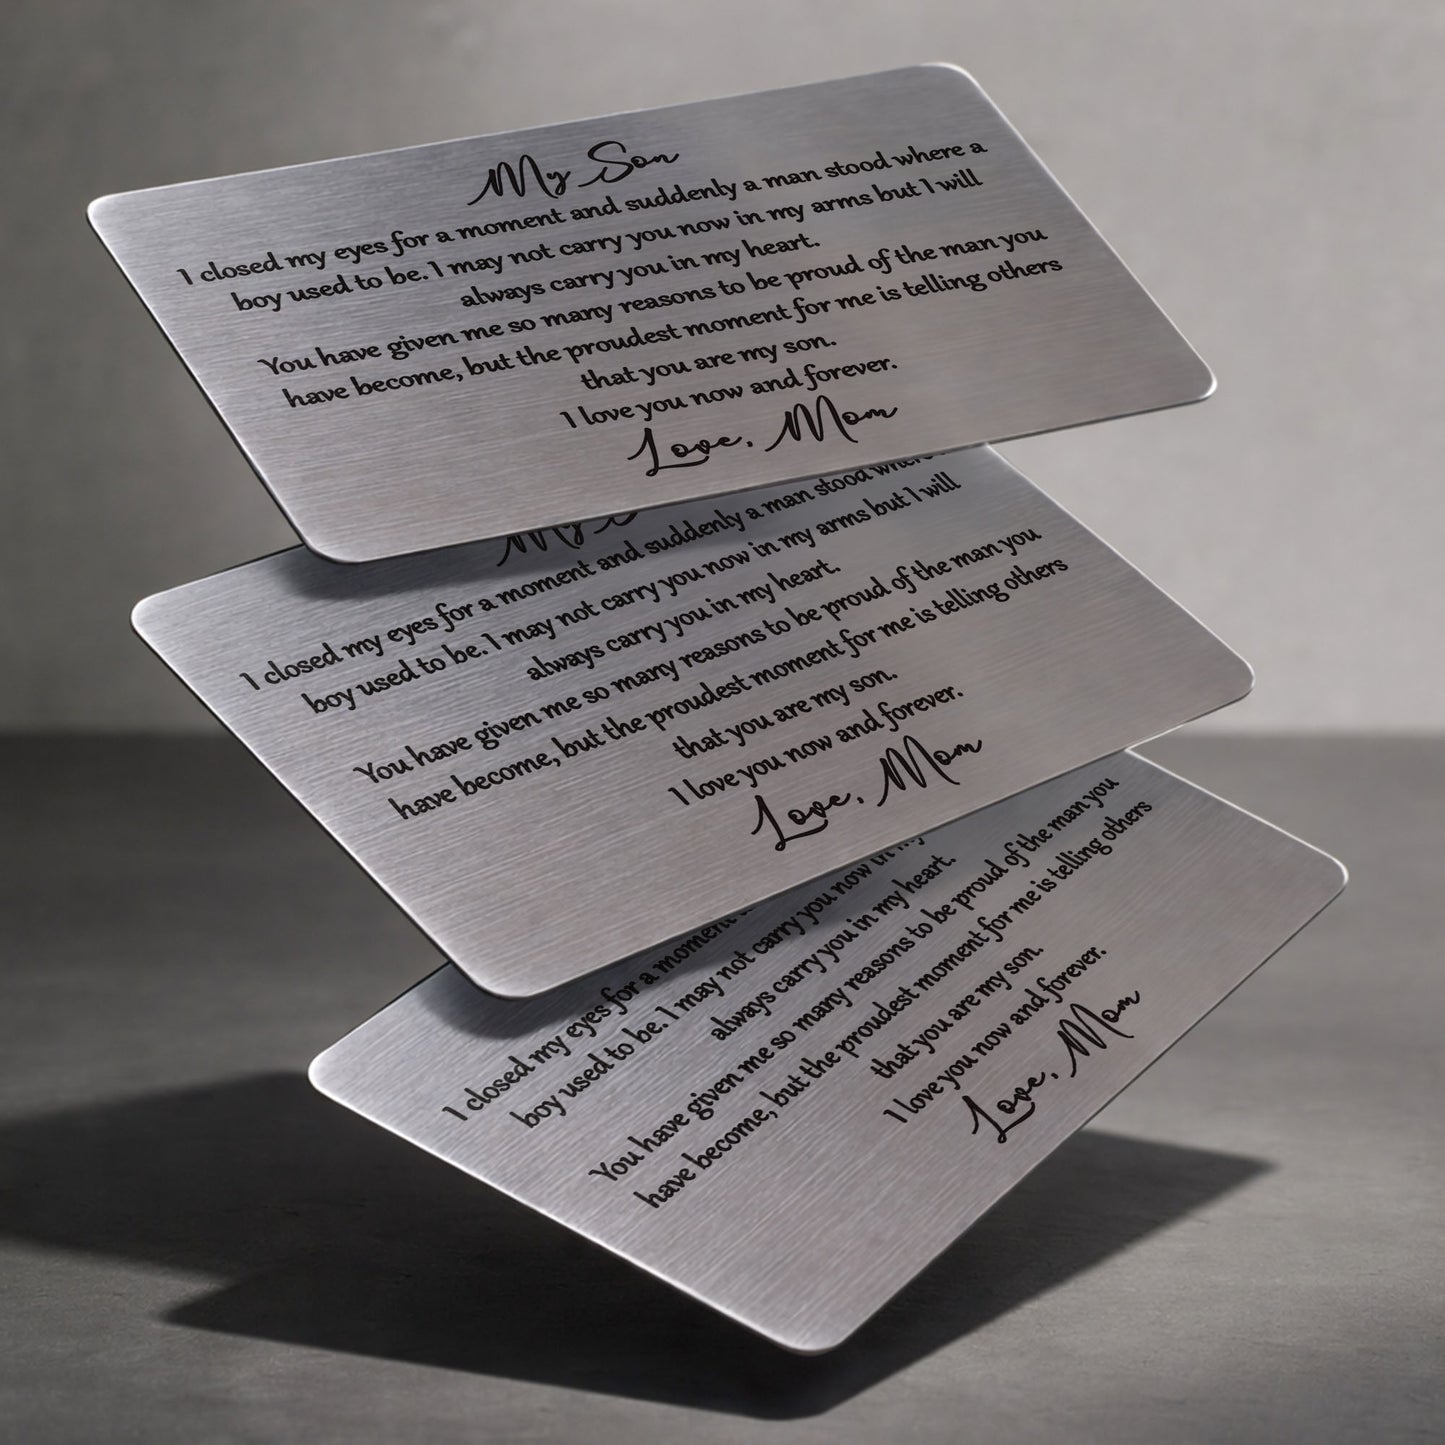 My Son
I closed my eyes for a moment and suddenly a man stood where a
boy used to be. I may not carry you now in my arms but I will
always carry you in my heart.
You have given me so many reasons to be proud of the man you
have become, but the proudest moment for me is telling others
that you are my son.
I love you now and forever.
Love, Mom
My
I closed my eyes for a moment and suddenly a man stood where
boy used to be. I may not carry you now in my arms but I will
always carry you in my heart.
You have given me so many reasons to be proud of the man you
have become, but the proudest moment for me is telling others
that you are my son.
I love you now and forever.
Love, Mom
I closed my eyes for a moment
boy used to be. I may not carry you now in my
always carry you in my heart.
You have given me so many reasons to be proud of the man you
have become, but the proudest moment for me is telling others
that you are my son.
I love you now and forever.
Love, Mom